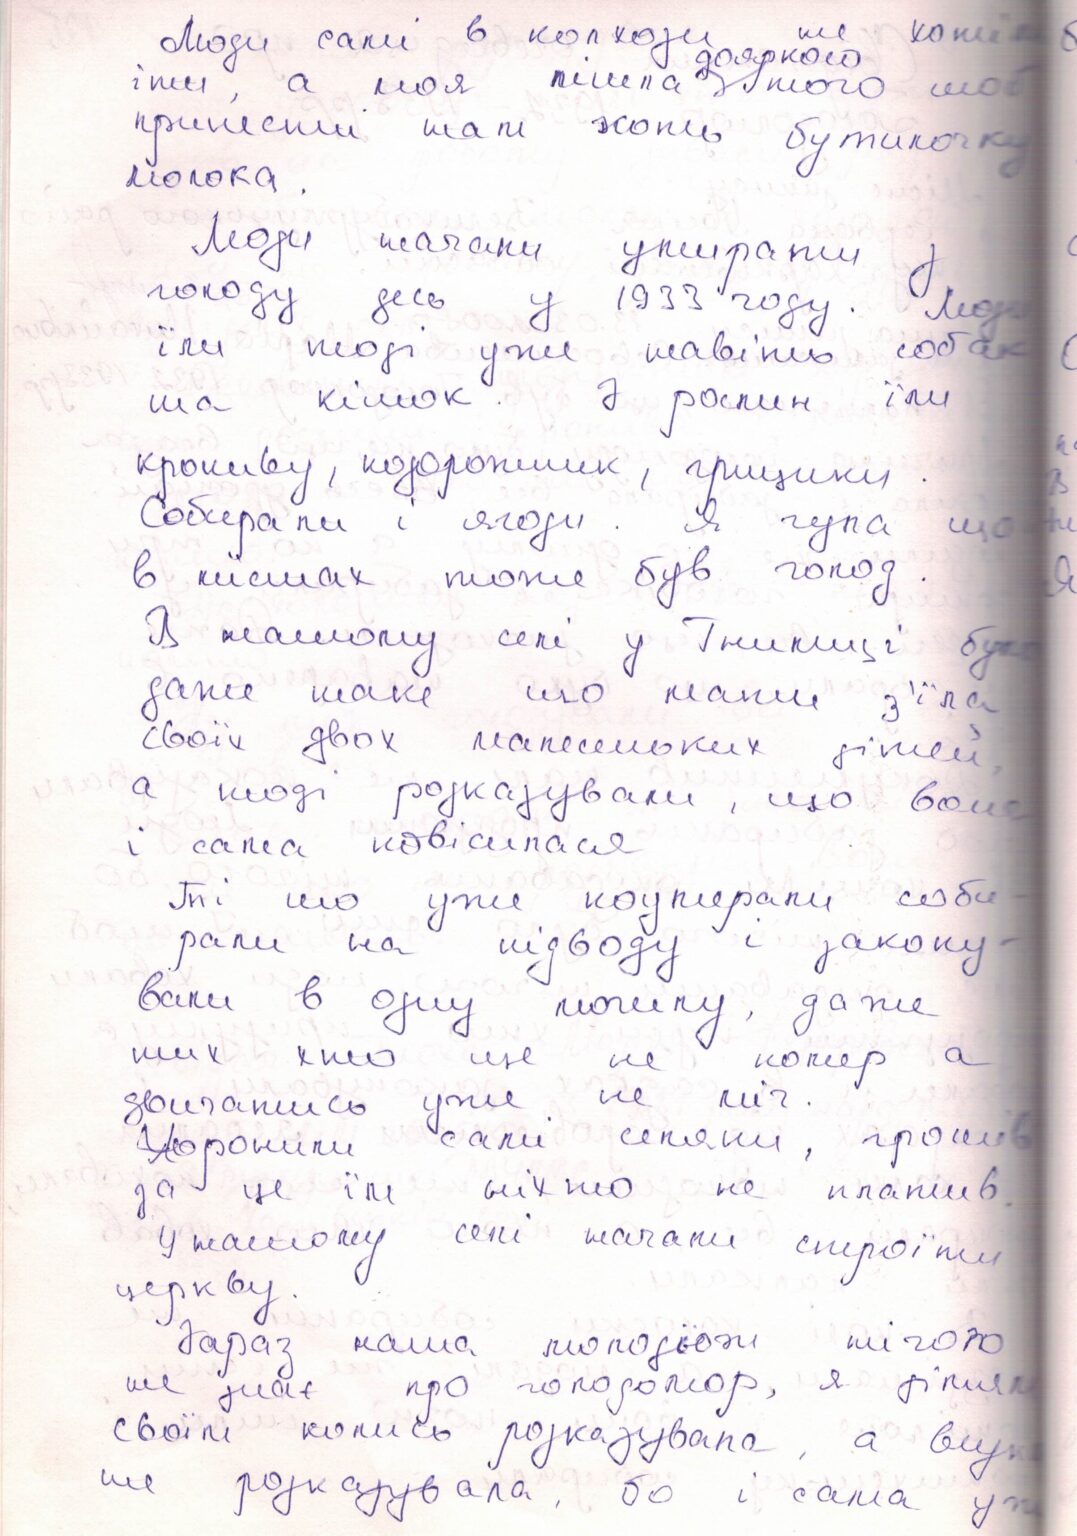 Люди самі в колхози не хотіли
дояркою
іти, а моя пішла з того щоб
принести нам хоть бутилочку
молока.
Люди начали умирати з
голоду десь у 1933 году. Люди
їли тоді уже навіть собак
та кішок. З рослин їли
кропиву, подорожник, грицики.
Собирали і ягоди. Я чула що
в містах тоже був голод.
В нашому селі у Гнилиці було
даже таке що мати з'їла
своїх двох малесиньких дітей,
а тоді розказували, що вона
і сама повісилася
Ті що уже поумерали соби-
рали на підводу і закопу-
вали в одну могилу, даже
тих хто ще не помер а
двигатись уже не міг.
Хоронили самі селяни, грошів
за це їм ніхто не платив.
У нашому селі начали строїти
церкву.
Зараз наша молодьож нічого
не знає про голодомор, я дітям
своїм колись розказувала, а
не розказувала, бо і сама уже